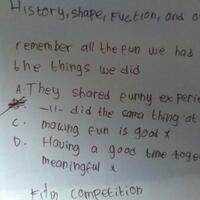 History, shape, Fuction, and o
remember all the fun we had
the things we did
A. They shared funny experie
B. -11- did the same thing at
C. making fun is good x
D. Having a good time toge
meaningful x
Film competition